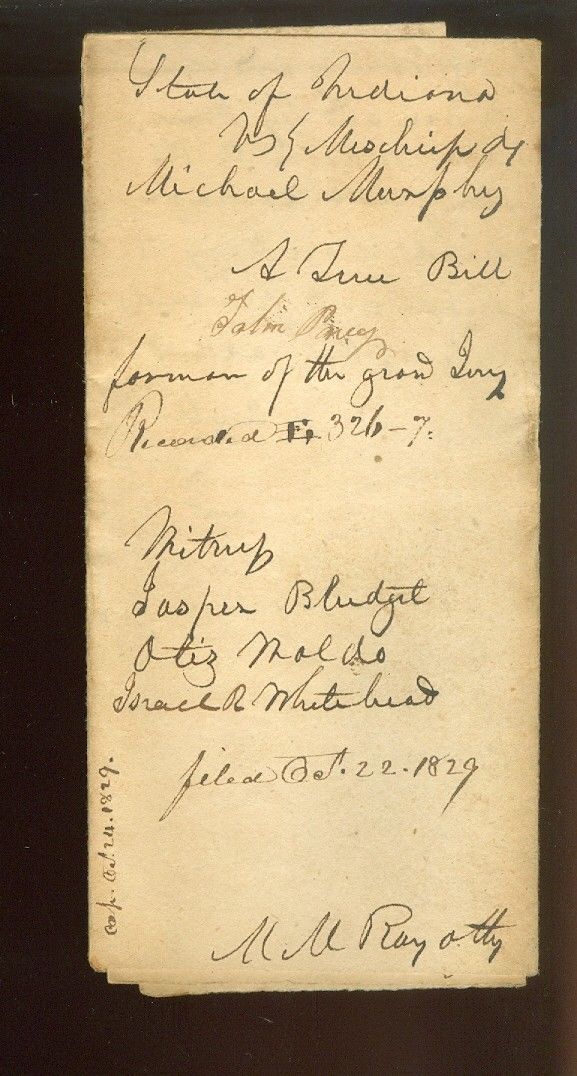 State of Indiana
vs } Mischief &c
Michael Murphy
A True Bill
forman of the grand Jury
Recorded E, 326-7.
Witness
Jasper Bludget
Otiz Waldo
Israel R Whitehead
filed Oct. 22. 1829
M M Ray atty
cap. Oct. 24. 1829.